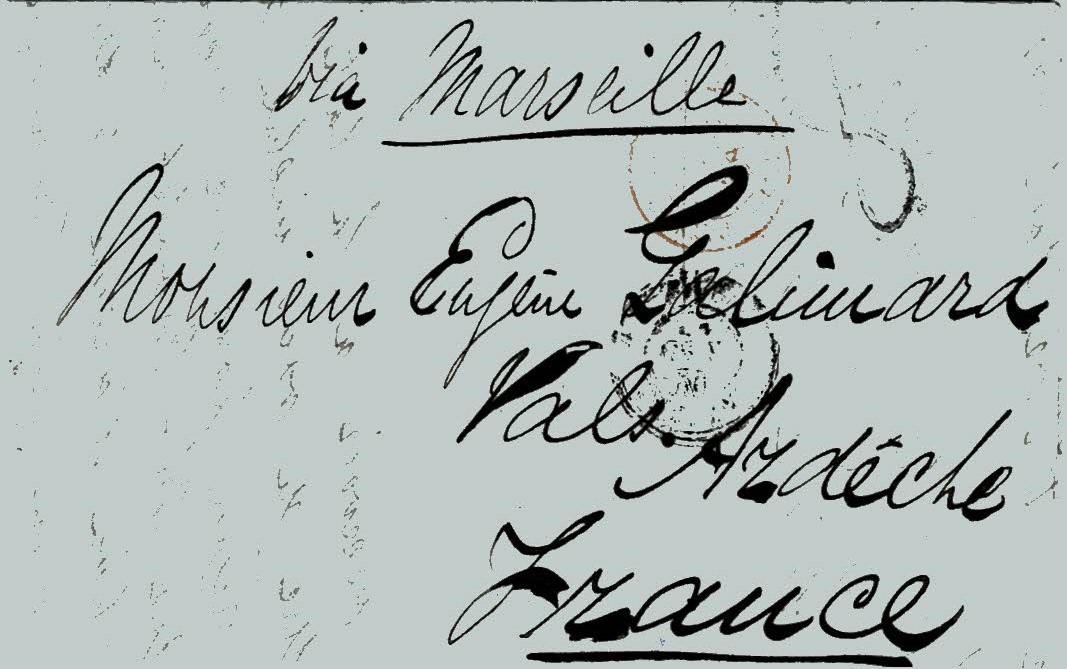 via Marseille
Monsieur Eugène Galimard
Vals. Ardèche
France